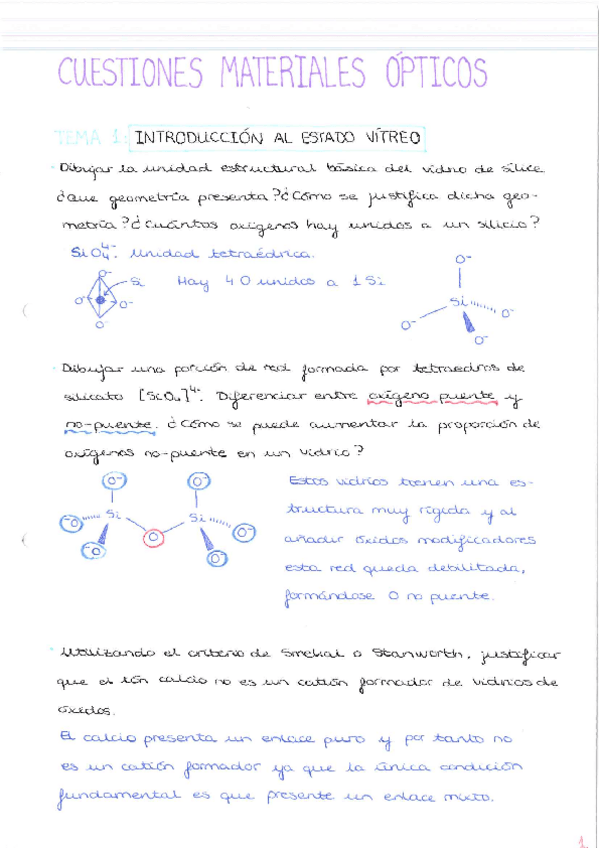 CUESTIONES MATERIALES ÓPTICOS
TEMA 1: INTRODUCCIÓN AL ESTADO VÍTREO
· Dibujar la unidad estructural básica del vidrio de sílice
¿Que geometría presenta? ¿Cómo se justifica dicha geo-
metría? ¿Cuántos oxígenos hay unidos a un silicio?
SiO₄⁴⁻. Unidad tetraédrica.
O⁻
Si
O⁻
O⁻
O⁻
Hay 4 O unidos a 1 Si
O⁻
Si
O⁻
O⁻
O⁻
· Dibujar una porción de red formada por tetraedros de
silicato [SiO₄]⁴⁻. Diferenciar entre oxígeno puente y
no-puente. ¿Cómo se puede aumentar la proporción de
oxígenos no-puente en un vidrio?
O⁻ O⁻
⁻O Si Si O⁻
⁻O O O⁻
Estos vidrios tienen una es-
tructura muy rígida y al
añadir óxidos modificadores
esta red queda debilitada,
formándose O no puente.
· Utilizando el criterio de Smekal o Stanworth, justificar
que el ión calcio no es un catión formador de vidrios de
óxidos.
El calcio presenta un enlace puro y por tanto no
es un catión formador ya que la única condición
fundamental es que presente un enlace mixto.
1